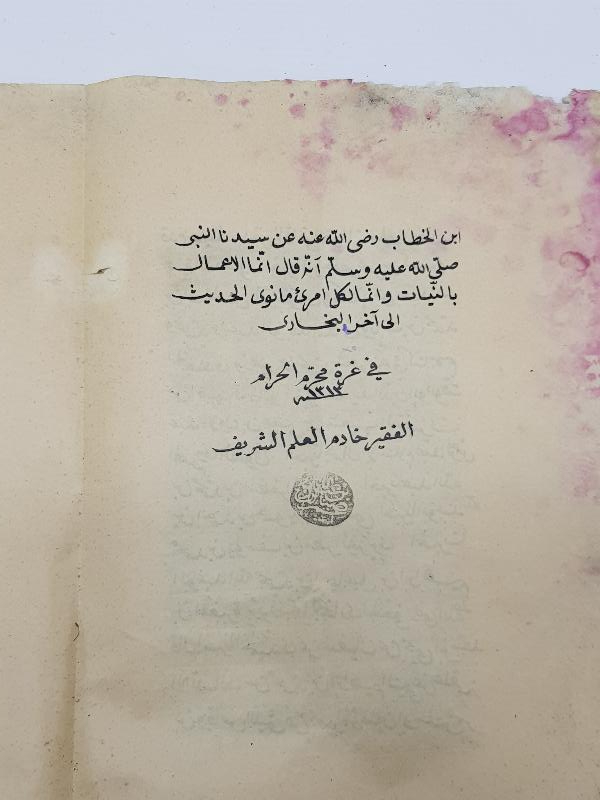 ابن الخطاب رضى الله عنه عن سيدنا النبى
صلّى الله عليه وسلّم أنّه قال انّما الاعمال
بالنّيات وانّما لكل امرئ مانوى الحديث
الى آخر البخارى
فى غرة محرّم الحرام
١٣١٣
الفقير خادم العلم الشريف